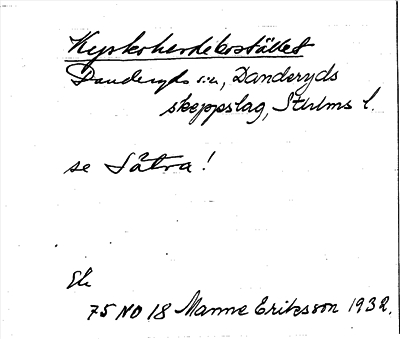 Kyrkoherdebostället
Danderyds sn, Danderyds
skeppslag, Sthlms l.
se Sätra!
75 NO 18 Manne Eriksson 1932.